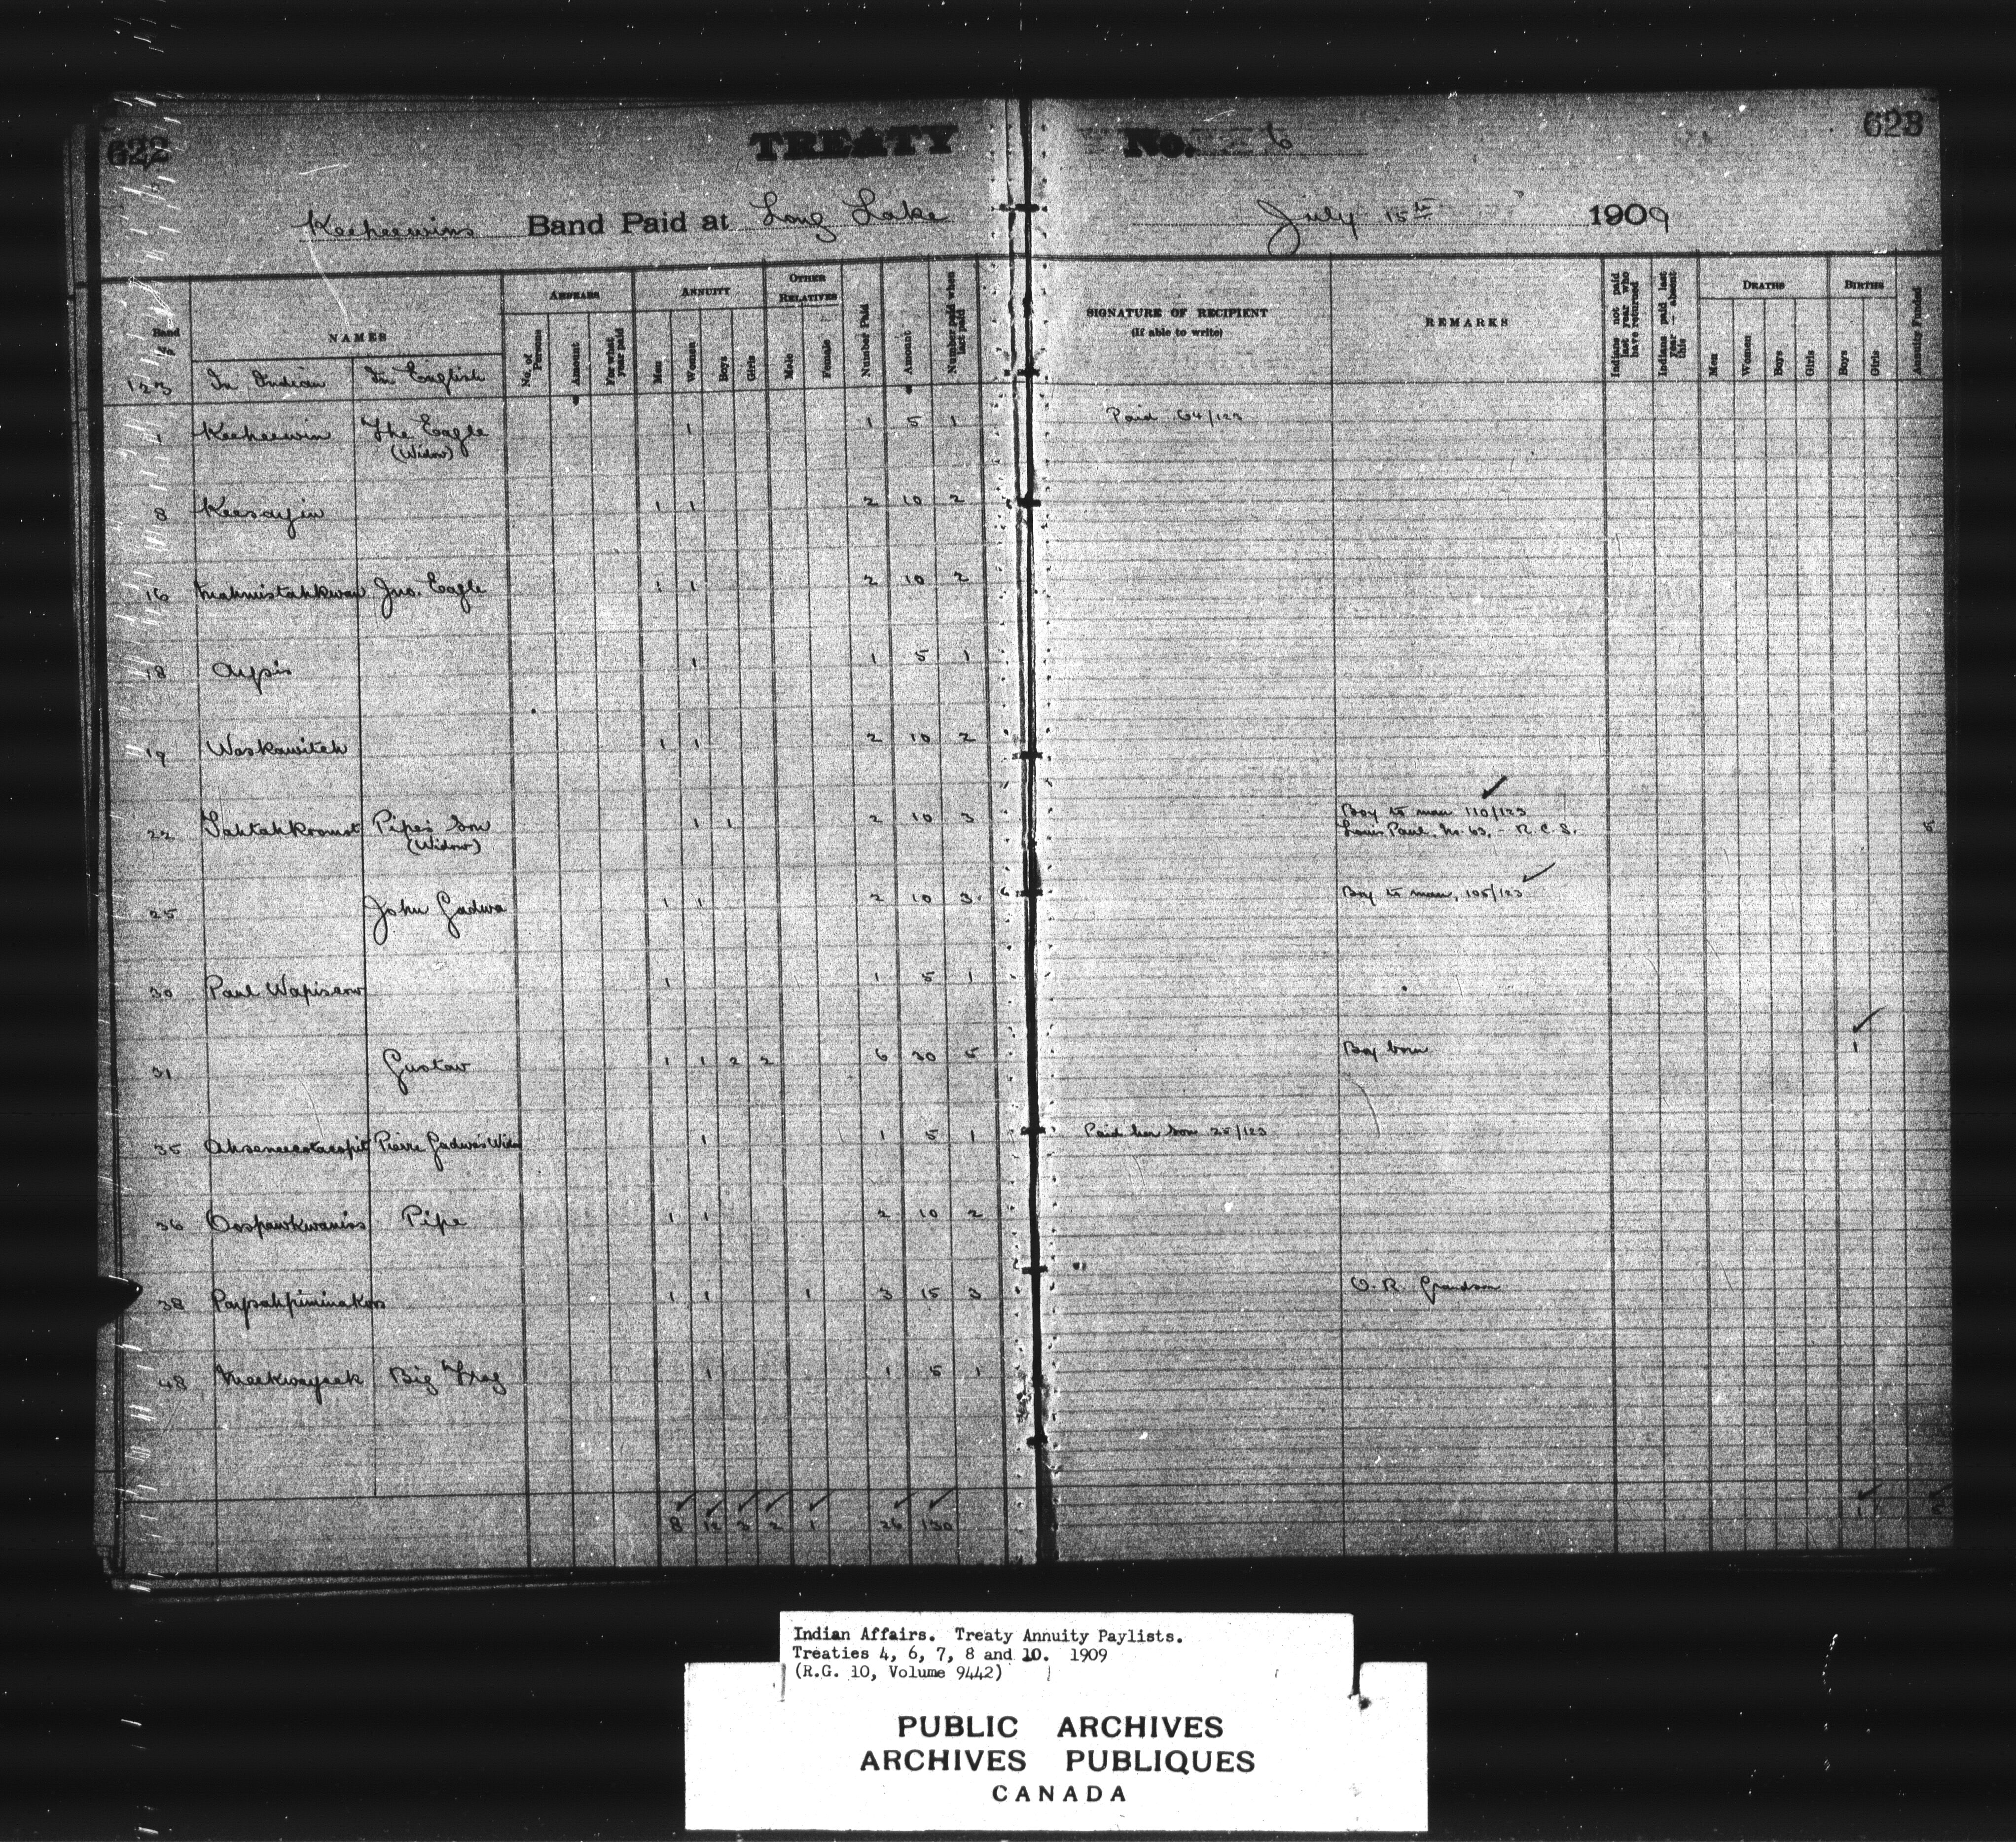 622
TREATY No. 6
623
Keeheewins Band Paid at Long Lake July 15th 1909
Band No. 123
NAMES
In Indian
In English
ARREARS
No. of Persons
Amount
For what year paid
ANNUITY
Men
Women
Boys
Girls
OTHER RELATIVES
Male
Female
Number Paid
Amount
Number paid when last paid
SIGNATURE OF RECIPIENT
(If able to write)
REMARKS
Indians not paid last year who have returned
Indians paid last year — absent this
DEATHS
Men
Women
Boys
Girls
BIRTHS
Boys
Girls
Annuity Funded
1 Keeheewin The Eagle 1 1 5 1 Paid 64/123
(Widow)
8 Keesayin 1 1 2 10 2
16 Mahmistahkwan Jno. Eagle 1 1 2 10 2
18 Aypis 1 1 5 1
19 Waskawitch 1 1 2 10 2
22 Tahtahkromot Pipe's Son 1 1 2 10 3 Boy to man 110/123
(Widow) Louis Paul, No. 63, - R.C.S. 5
25 John Gadwa 1 1 2 10 3 Boy to man, 105/123
30 Paul Wapisew 1 1 5 1
31 Gustav 1 1 2 2 6 30 5 Boy born 1
35 Pierre Gadwa's Wido 1 1 5 1 Paid her son 25/123
36 Oospawkwaniss Pipe 1 1 2 10 2
38 Paysahpiminakoos 1 1 1 3 15 3 O.R. Grandson
48 Meekwayack Big Frog 1 1 5 1
8 12 3 2 1 26 130 1
Indian Affairs. Treaty Annuity Paylists.
Treaties 4, 6, 7, 8 and 10. 1909
(R.G. 10, Volume 9442)
PUBLIC ARCHIVES
ARCHIVES PUBLIQUES
CANADA